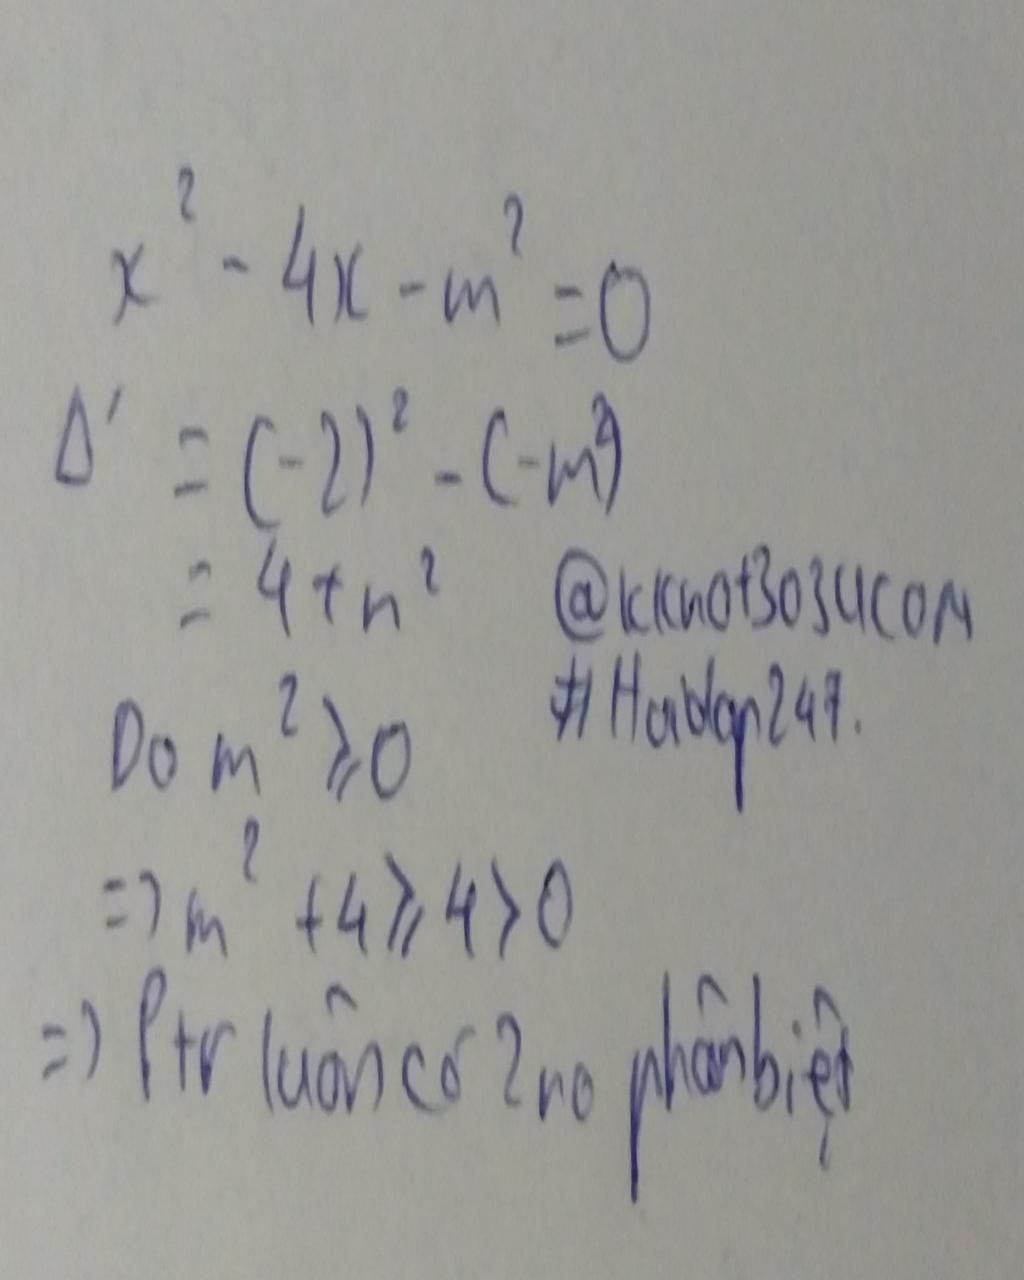 x² - 4x - m² = 0
Δ' = (-2)² - (-m²)
= 4 + n²
@kknot3034com
#Hoidap247.
Do m² ⩾ 0
=> m² + 4 ⩾ 4 > 0
=> Ptr luôn có 2 no phân biệt